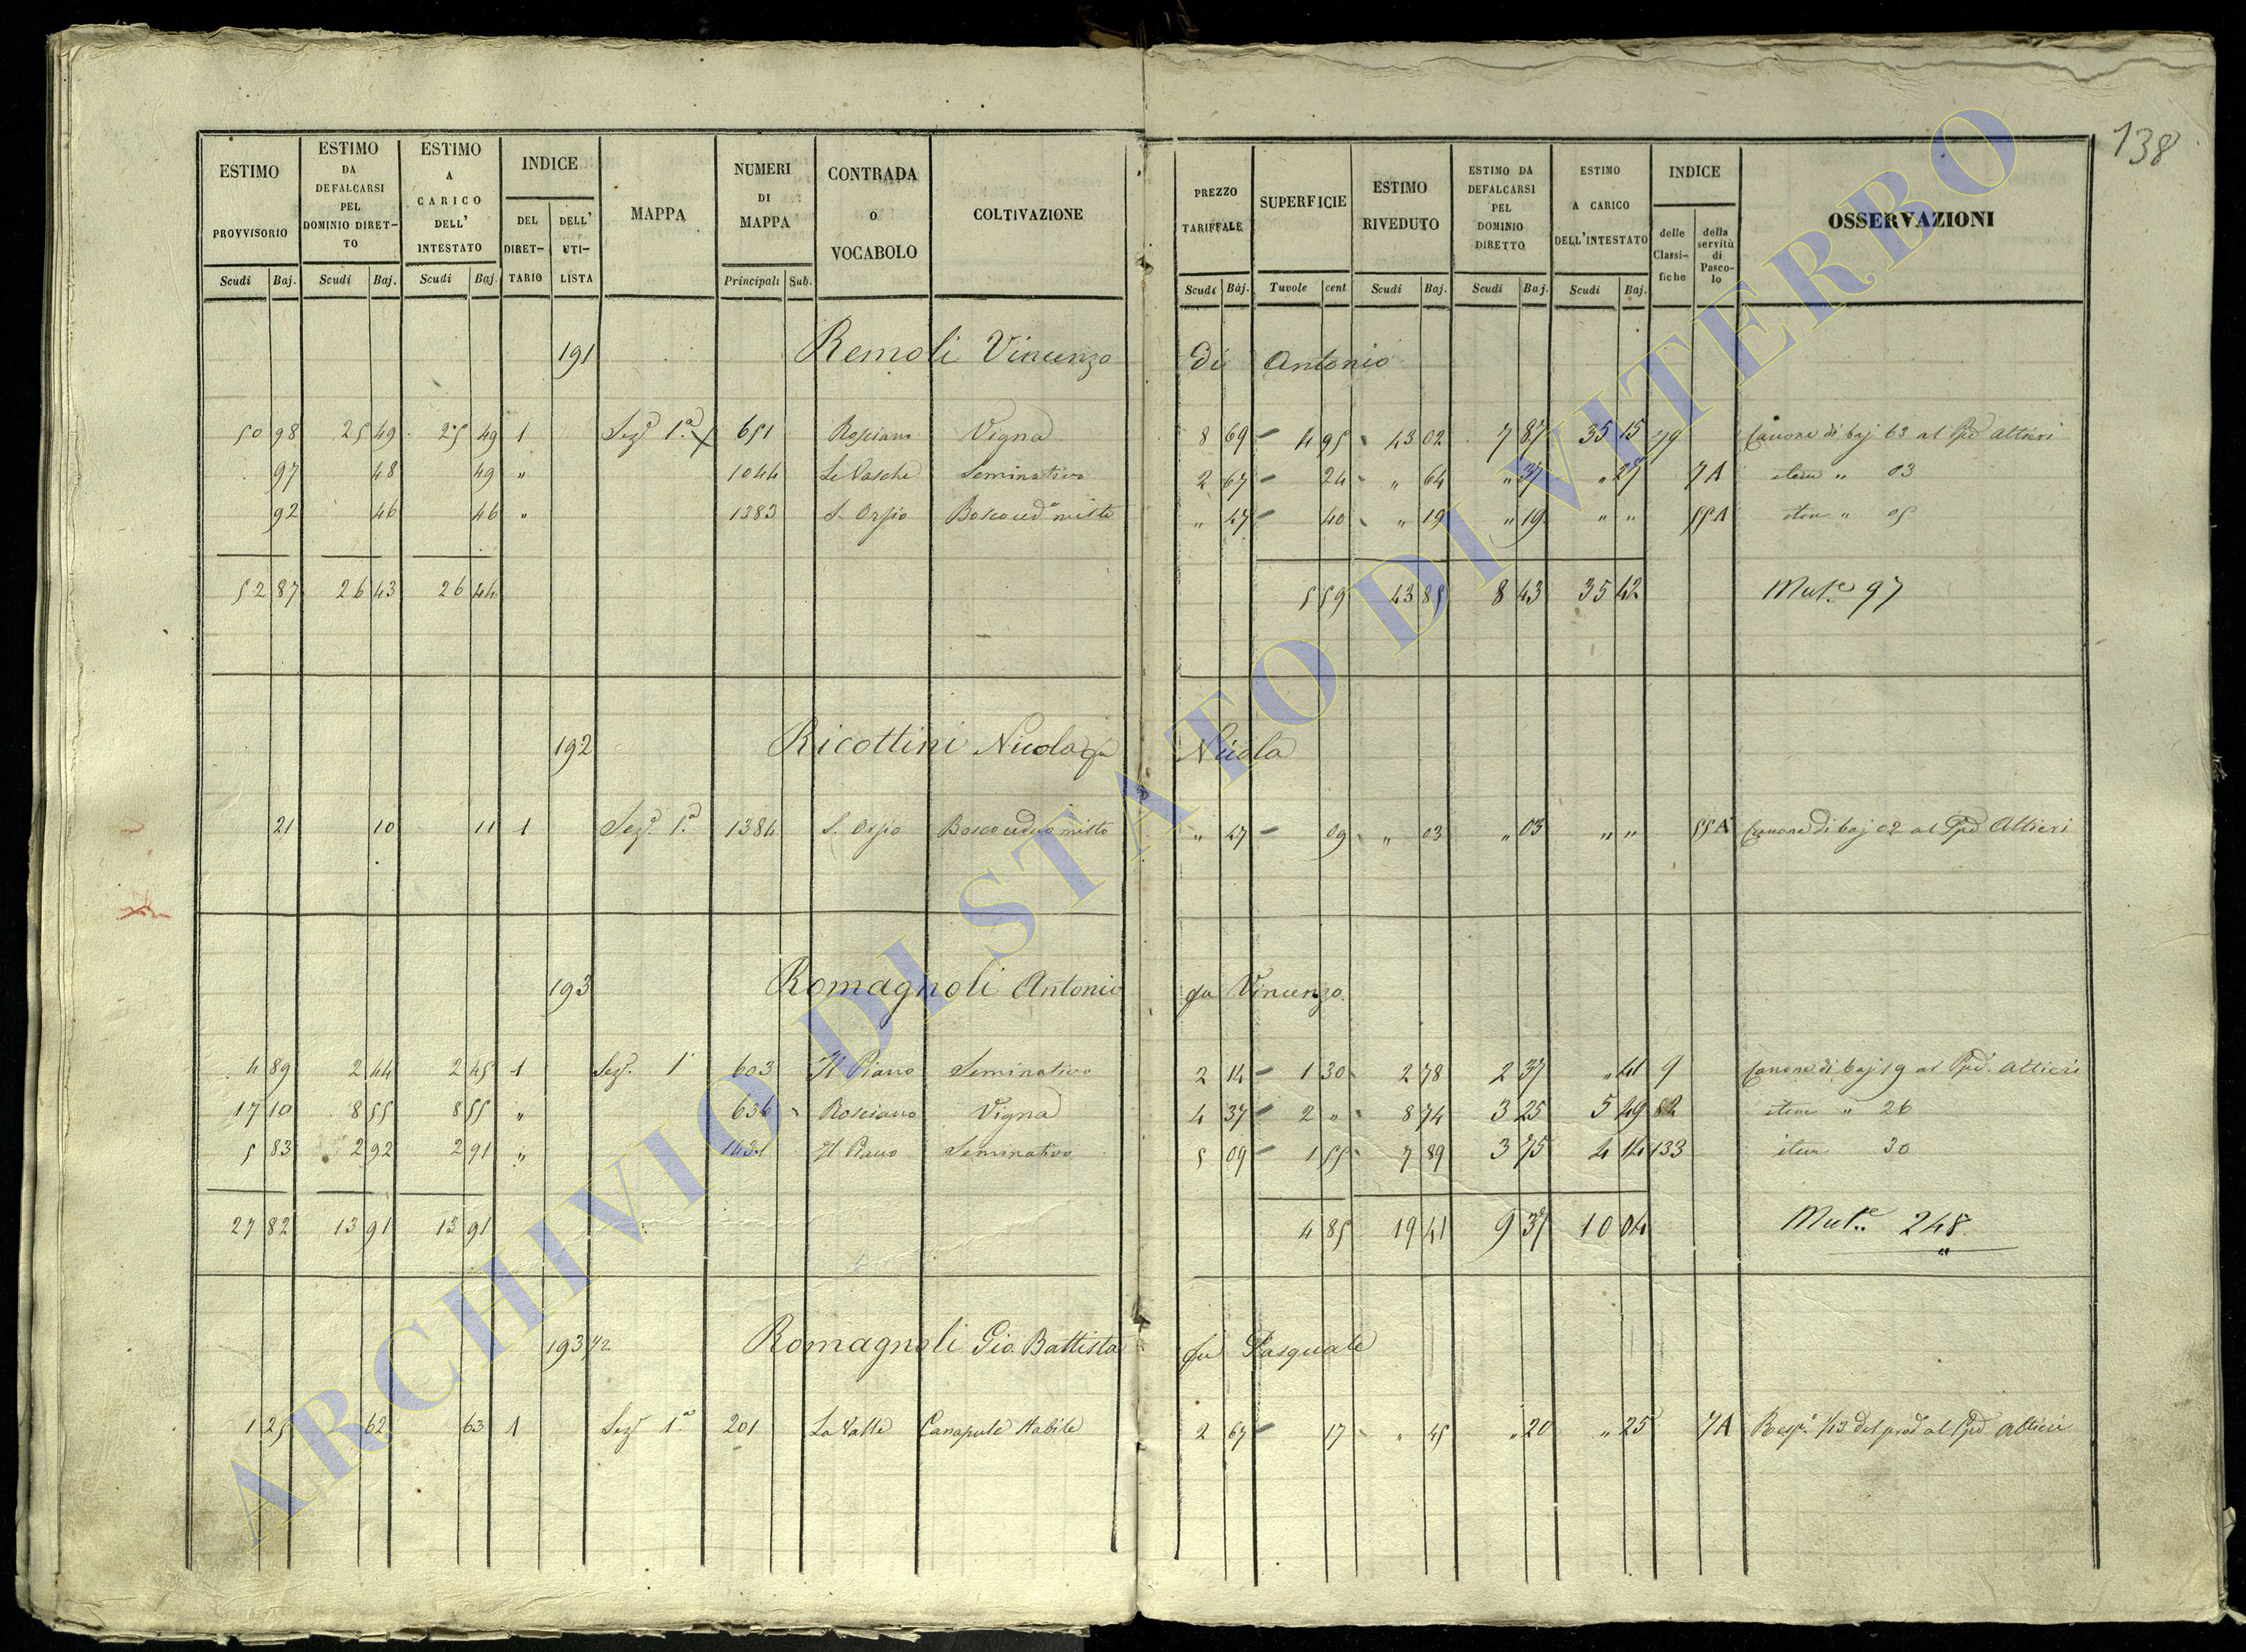 138
ESTIMO PROVVISORIO | ESTIMO DA DEFALCARSI PEL DOMINIO DIRETTO | ESTIMO A CARICO DELL' INTESTATO | INDICE DEL DIRETTARIO | DELL' UTILISTA | MAPPA | NUMERI DI MAPPA | CONTRADA O VOCABOLO | COLTIVAZIONE | PREZZO TARIFFALE | SUPERFICIE | ESTIMO RIVEDUTO | ESTIMO DA DEFALCARSI PEL DOMINIO DIRETTO | ESTIMO A CARICO DELL'INTESTATO | INDICE delle Classifiche | della servitù di Pascolo | OSSERVAZIONI
Scudi | Baj. | Scudi | Baj. | Scudi | Baj. | Principali | Sub. | Scudi | Baj. | Tavole | cent. | Scudi | Baj. | Scudi | Baj. | Scudi | Baj.
191 Remoli Vincenzo di Antonio
50 98 | 25 49 | 25 49 | 1 | Sez.e 1.a | 651 | Rosciano | Vigna | 8 69 | 4 95 | 43 02 | 7 87 | 35 15 | 79 | Canone di baj 63 al Ppe Altieri
97 | 48 | 49 | " | 1044 | Le Vasche | Seminativo | 2 67 | 24 | " 64 | " 37 | " 27 | 7A | item " 03
92 | 46 | 46 | " | 1383 | S. Orsio | Bosco ced° misto | " 47 | 40 | " 19 | " 19 | " " | 55A | item " 05
52 87 | 26 43 | 26 44 | 5 59 | 43 85 | 8 43 | 35 42 | Mut.e 97
192 Ricottini Nicola fu Nicola
21 | 10 | 11 | 1 | Sez.e 1.a | 1384 | S. Orsio | Bosco ceduo misto | " 47 | 09 | " 03 | " 03 | " " | 55A | Canone di baj 02 al Ppe Altieri
193 Romagnoli Antonio fu Vincenzo
4 89 | 2 44 | 2 45 | 1 | Sez.e 1 | 603 | Il Piano | Seminativo | 2 14 | 1 30 | 2 78 | 2 37 | " 41 | 9 | Canone di baj 19 al Ppe Altieri
17 10 | 8 55 | 8 55 | " | 636 | Rosciano | Vigna | 4 37 | 2 " | 8 74 | 3 25 | 5 49 | 82 | item " 26
5 83 | 2 92 | 2 91 | " | 1431 | Il Piano | Seminativo | 5 09 | 1 55 | 7 89 | 3 75 | 4 14 | 133 | item 30
27 82 | 13 91 | 13 91 | 4 85 | 19 41 | 9 37 | 10 04 | Mut.e 248
193 1/2 Romagnoli Gio. Battista fu Pasquale
1 25 | 62 | 63 | 1 | Sez.e 1.a | 201 | La Valle | Canapule stabile | 2 67 | 17 | " 45 | " 20 | " 25 | 7A | Resp.a 1/13 del prod° al Ppe Altieri
ARCHIVIO DI STATO DI VITERBO